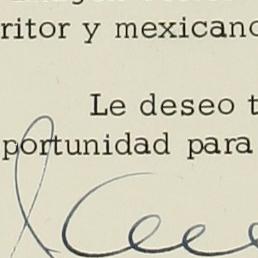 ritor y mexicano
Le deseo t
portunidad para